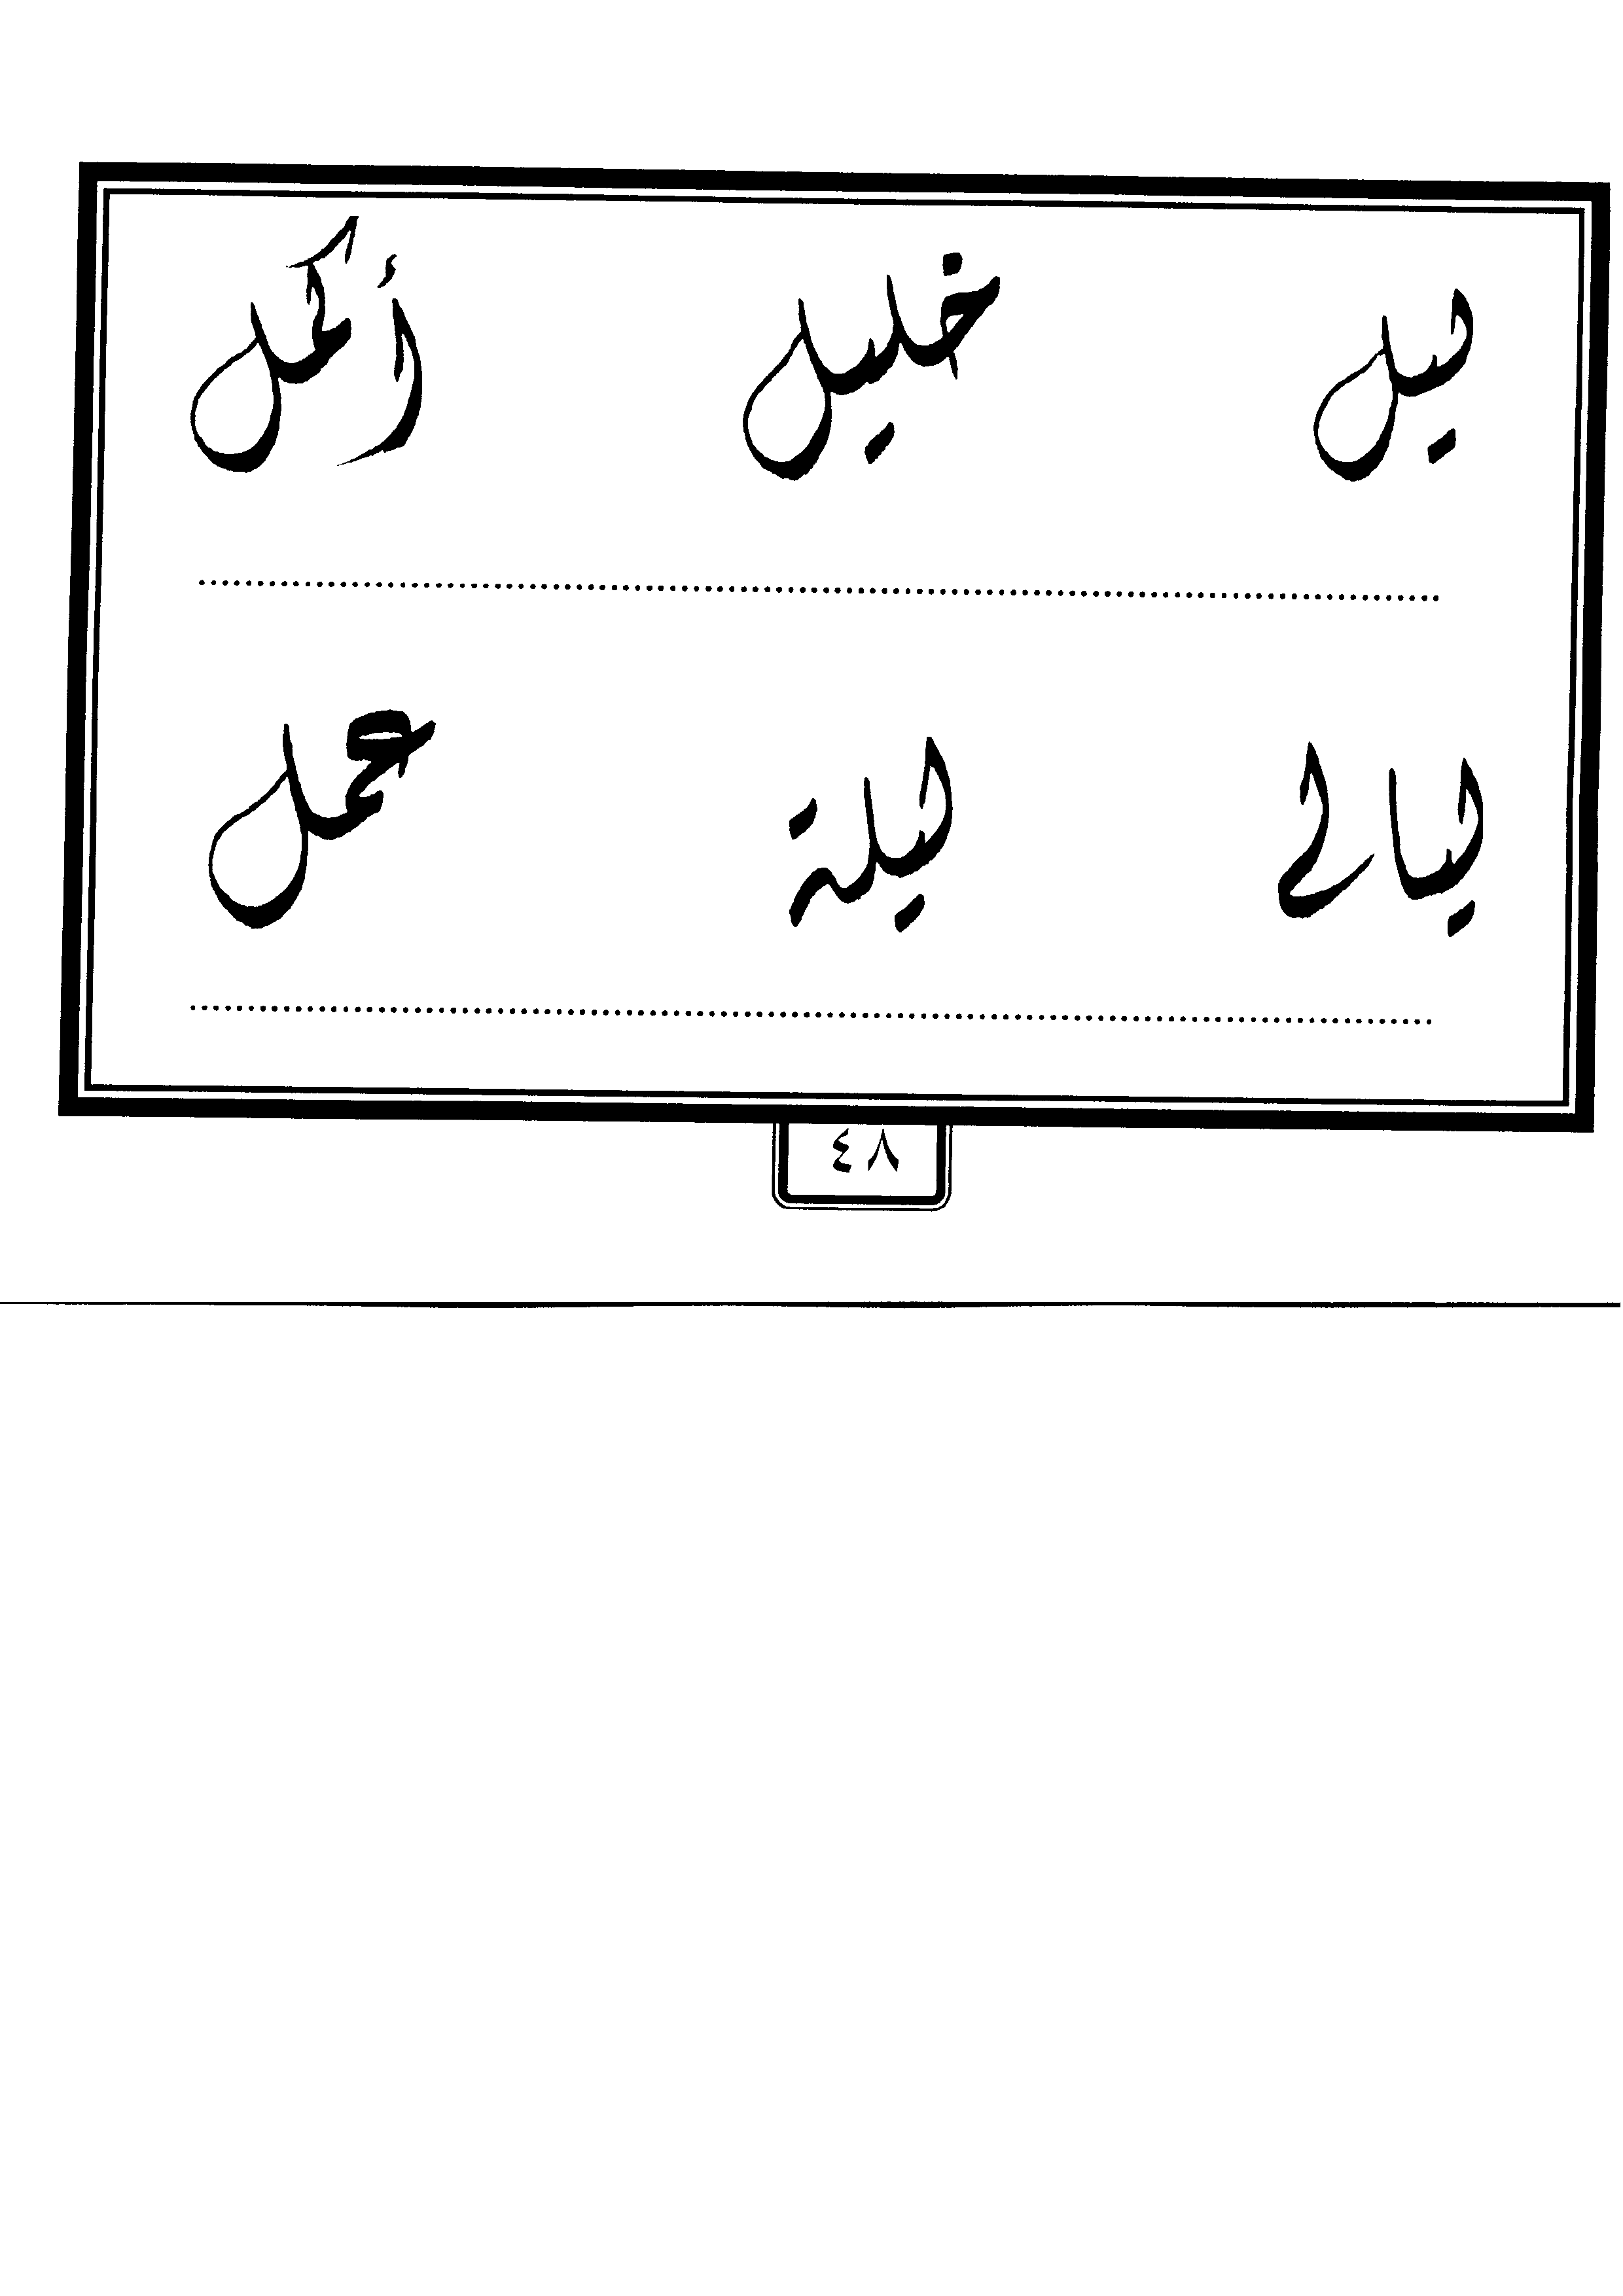 ليل خليل أكمل
ليالي ليلة عمل
٤٨